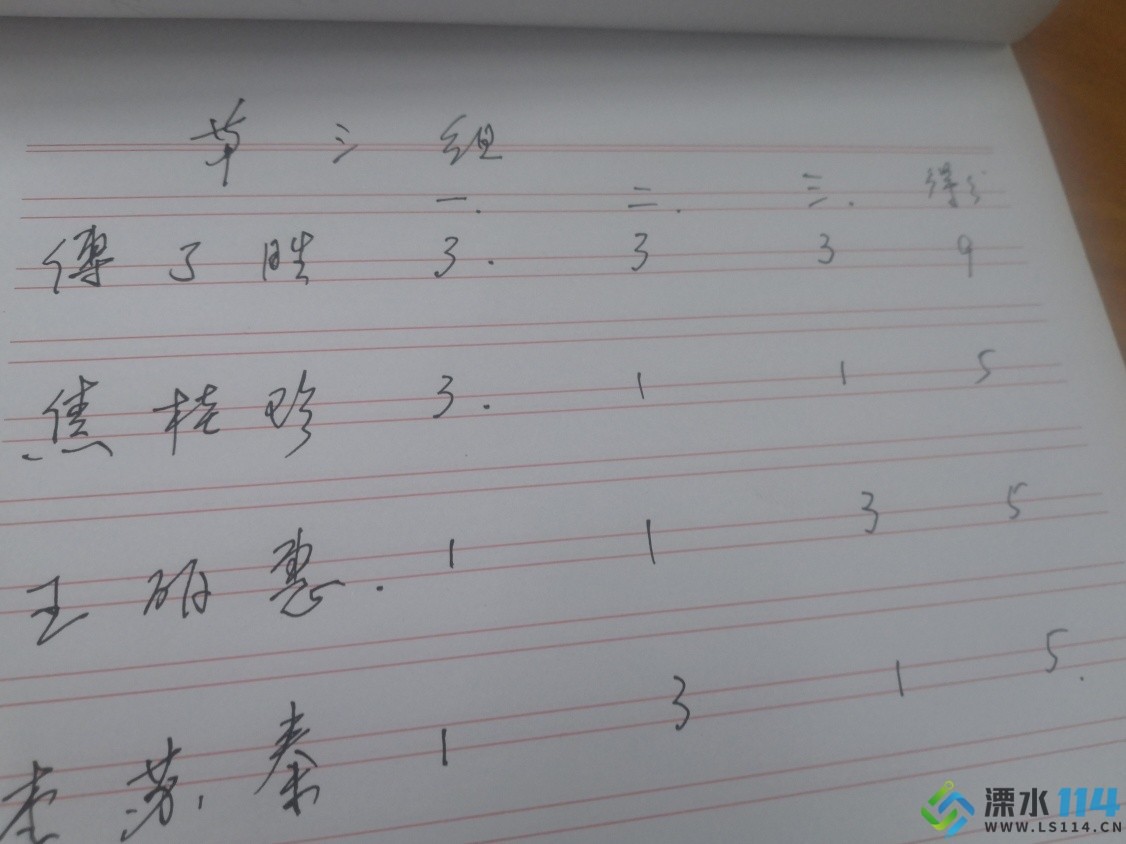 第三组
一. 二. 三. 得分
傅了胜 3. 3 3 9
焦桂珍 3. 1 1 5
王丽惠. 1 1 3 5
李苏秦 1 3 1 5.
溧水114
WWW.LS114.CN